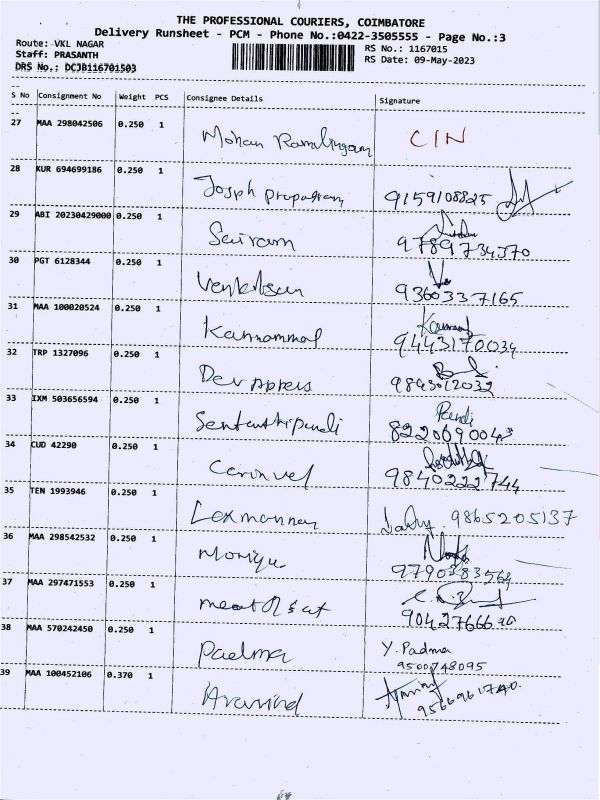 THE PROFESSIONAL COURIERS, COIMBATORE
Delivery Runsheet - PCM - Phone No.:0422-3505555 - Page No.:3
Route: VKL NAGAR
RS No.: 1167015
Staff: PRASANTH
RS Date: 09-May-2023
DRS No.: DCJB116701503
S No Consignment No Weight PCS Consignee Details Signature
27 MAA 298042506 0.250 1 Mohan Ramlingam CIN
28 KUR 694699186 0.250 1 9159108825
29 ABI 20230429000 0.250 1 Sairam 9789734370
30 PGT 6128344 0.250 1 9360337165
31 MAA 100020524 0.250 1 Kannammal 9443170034
32 TRP 1327096 0.250 1
33 IXM 503656594 0.250 1 Pandi
34 CUD 42290 0.250 1 9840222744
35 TEN 1993946 0.250 1 9865205137
36 MAA 298542532 0.250 1
37 MAA 297471553 0.250 1
38 MAA 570242450 0.250 1 Padma Y. Padma
9500748095
39 MAA 100452106 0.370 1 Aravind